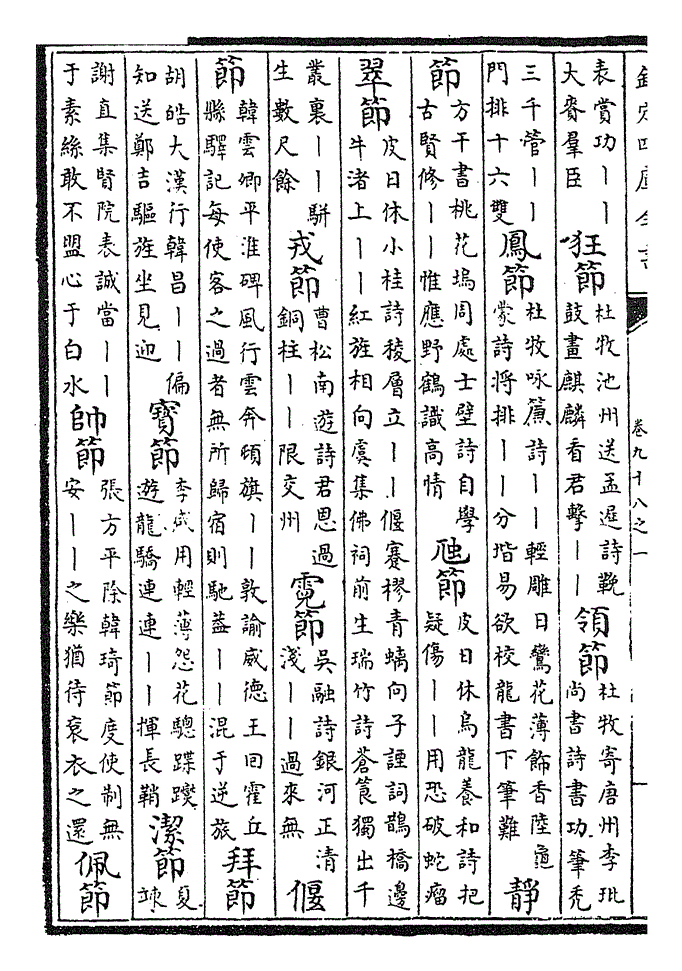 欽定四庫全書
卷九十八之一
表賞功一一
大賚羣臣
狂節
杜牧池州送孟遲詩靴
鼓畫麒麟看君擊一一
領節
杜牧寄唐州李玭
尚書詩書功筆禿
三千管一一
門排十六雙
鳳節
杜牧咏簾詩一一輕雕日鸞花薄飾香陸龜
蒙詩將排一一分堦易欲校龍書下筆難
靜
節
方干書桃花塢周處士壁詩自學
古賢修一一惟應野鶴識高情
虺節
皮日休烏龍養和詩把
疑傷一一用恐破蛇瘤
翠節
皮日休小桂詩稜層立一一偃蹇樛青螭向子諲詞鵲橋邊
牛渚上一一紅旌相向虞集佛祠前生瑞竹詩蒼筤獨出千
叢裏一一駢
生數尺餘
戎節
曹松南遊詩君恩過
銅柱一一限交州
霓節
吳融詩銀河正清
淺一一過來無
偃
節
韓雲卿平淮碑風行雲奔頎旗一一敦諭威德王回霍丘
縣驛記每使客之過者無所歸宿則馳蓋一一混于逆旅
拜節
胡皓大漢行韓昌一一偏
知送鄭吉驅旌坐見迎
寶節
李咸用輕薄怨花驄蹀躞
遊龍驕連連一一揮長鞘
潔節
夏
竦
謝直集賢院表誠當一一
于素絲敢不盟心于白水
帥節
張方平除韓琦節度使制無
安一一之樂猶待袞衣之還
佩節